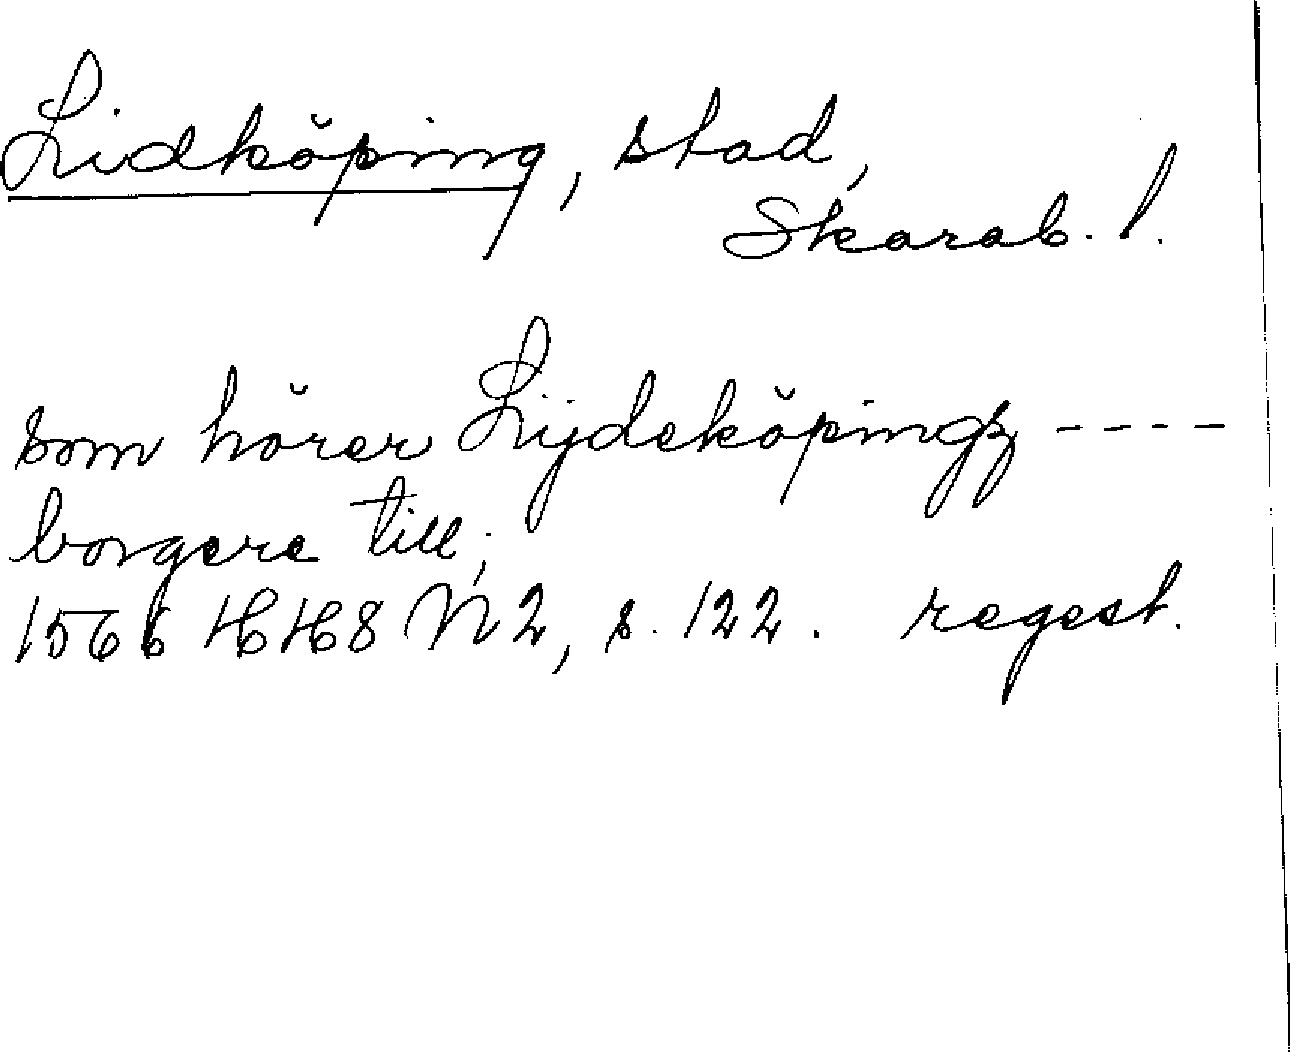 Lidköping, stad,
Skarab. l.
som hörer Lijdeköpingz ----
borgere till;
1566 HH8 N2, s. 122. regest.